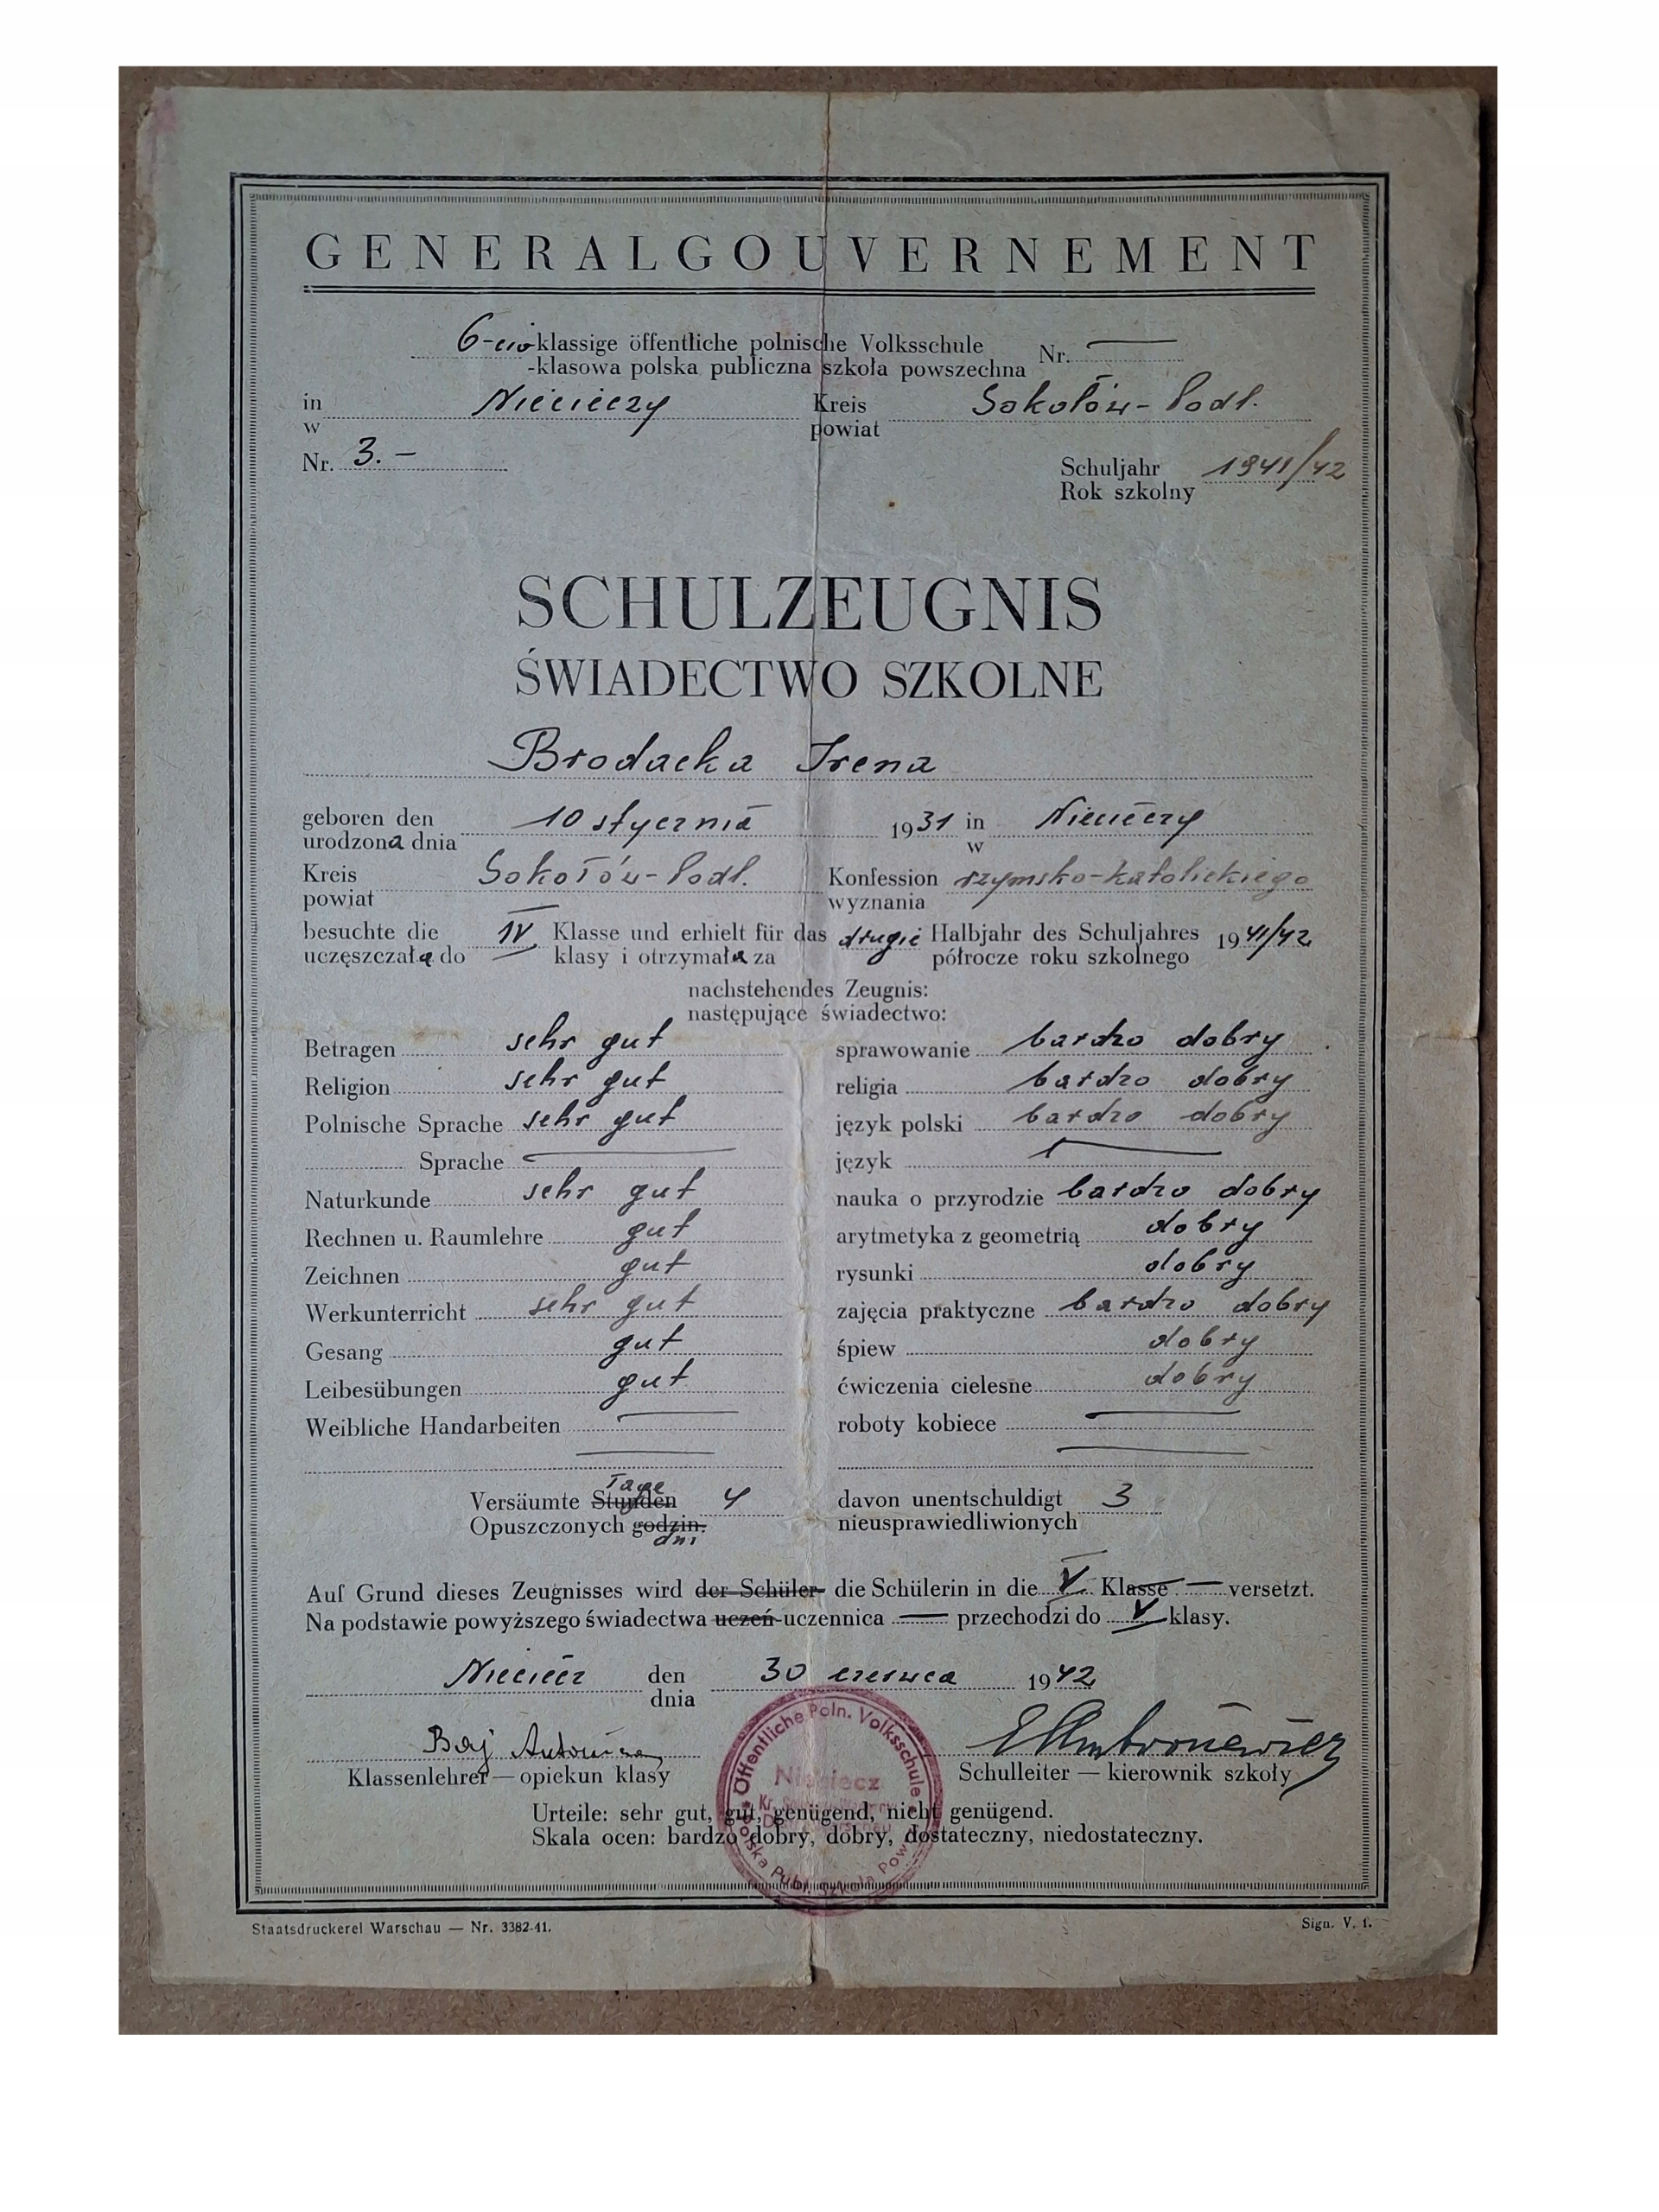 GENERALGOUVERNEMENT
6-cio klassige öffentliche polnische Volksschule
-klasowa polska publiczna szkoła powszechna Nr. —
in Niecieczy Kreis Sokołów-Podl.
w powiat
Nr. 3.-
Schuljahr 1941/42
Rok szkolny
SCHULZEUGNIS
ŚWIADECTWO SZKOLNE
Brodacka Irena
geboren den 10 stycznia 1931 in Niecieczy
urodzona dnia w
Kreis Sokołów-Podl. Konfession rzymsko-katolickiego
powiat wyznania
besuchte die IV Klasse und erhielt für das drugie Halbjahr des Schuljahres 1941/42
uczęszczała do klasy i otrzymała za półrocze roku szkolnego
nachstehendes Zeugnis:
następujące świadectwo:
Betragen sehr gut sprawowanie bardzo dobry
Religion sehr gut religia bardzo dobry
Polnische Sprache sehr gut język polski bardzo dobry
Sprache — język —
Naturkunde sehr gut nauka o przyrodzie bardzo dobry
Rechnen u. Raumlehre gut arytmetyka z geometrią dobry
Zeichnen gut rysunki dobry
Werkunterricht sehr gut zajęcia praktyczne bardzo dobry
Gesang gut śpiew dobry
Leibesübungen gut ćwiczenia cielesne dobry
Weibliche Handarbeiten — roboty kobiece —
— —
Tage
Versäumte Stunden 4 davon unentschuldigt 3
Opuszczonych godzin. nieusprawiedliwionych
dni
Auf Grund dieses Zeugnisses wird der Schüler- die Schülerin in die V Klasse — versetzt.
Na podstawie powyższego świadectwa uczeń-uczennica — przechodzi do V klasy.
Nieciecz den 30 czerwca 1942
dnia
Baj Antonina
Klassenlehrer — opiekun klasy Schulleiter — kierownik szkoły
Öffentliche Poln. Volksschule
Nieciecz
Polska Publ. Szkoła Pow
Urteile: sehr gut, gut, genügend, nicht genügend.
Skala ocen: bardzo dobry, dobry, dostateczny, niedostateczny.
Staatsdruckerei Warschau — Nr. 3382-41. Sign. V. 1.